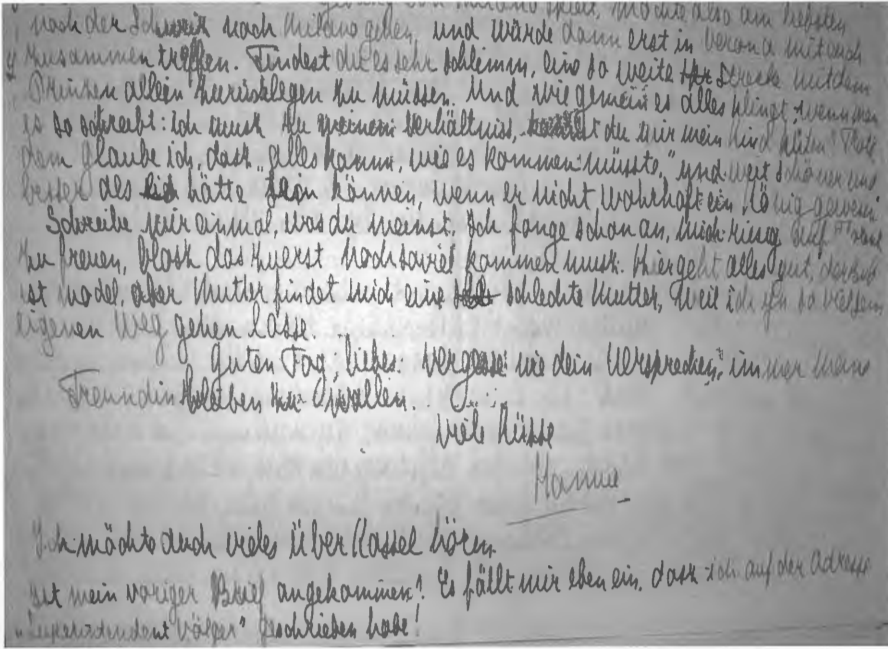 möchte also am liebsten
nach der Schweiz nach Milano gehen, und würde dann erst in Verona mit euch
zusammen treffen. Findest du es sehr schlimm, eine so weite Strecke mit dem
Prinzen allein zurücklegen zu müssen. Und wie gemein es alles klingt, wenn man
es so schreibt: Ich muss zu meinem Verhältniss, du mir mein Kind hüten! Trotz
dem glaube ich, dass "alles kamm, wie es kommen müsste," und weit schöner und
besser als hätte sein können, wenn er nicht wahrhaft ein König gewesen.
Schreibe mir einmal, was du meinst. Ich fange schon an, mich auf
zu freuen, bloss das zuerst noch soviel kommen muss. Hier geht alles gut,
ist aber Mutter findet mich eine schlechte Mutter, weil ich so viel seinen
eigenen Weg gehen lasse.
Guten Tag, liebes: vergesse nie dein Versprechen, immer meine
Freundin bleiben zu wollen.
Viele Küsse
Hanna
Ich möchte auch vieles über Kassel hören.
Ist mein voriger Brief angekommen? Es fällt mir eben ein, dass ich auf der Adresse
"Superintendent Völger" geschrieben habe!